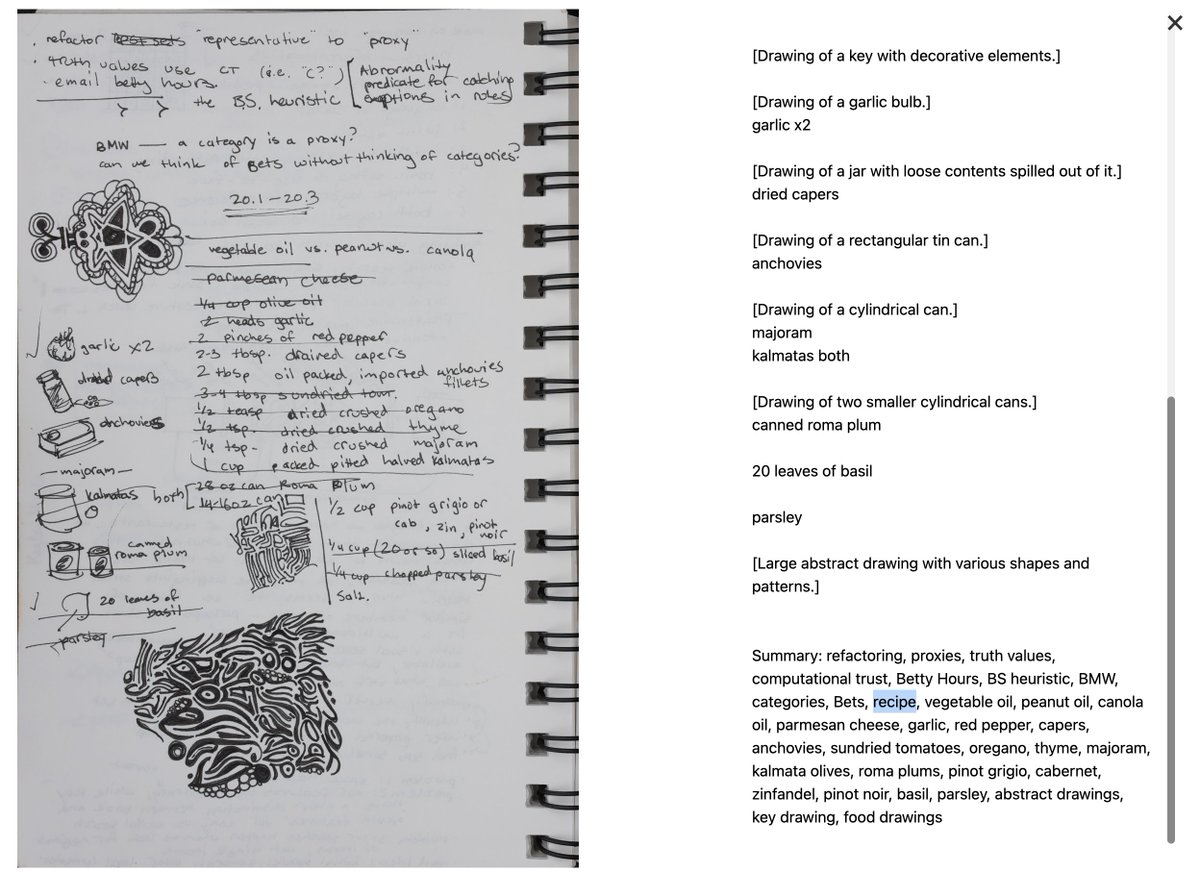 . refactor test sets "representative" to "proxy"
. truth values use CT (i.e. "C?")
. email betty hours.
the B.S. heuristic
Abnormality
predicate for catching
exceptions in notes
BMW — a category is a proxy?
can we think of Bets without thinking of categories?
20.1 – 20.3
vegetable oil vs. peanut vs. canola
parmesean cheese
1/4 cup olive oil
2 heads garlic
2 pinches of red pepper
2-3 tbsp. drained capers
2 tbsp oil packed, imported anchovies
fillets
3-4 tbsp sundried tom.
1/2 teasp dried crushed oregano
1/2 tsp. dried crushed thyme
1/4 tsp. dried crushed majoram
1 cup packed pitted halved kalmatas
28 oz can Roma Plum
14-16oz can
1/2 cup pinot grigio or
cab, zin, pinot
noir
1/4 cup (20 or so) sliced basil
1/4 cup chopped parsley
Salt.
garlic x2
dried capers
anchovies
—majoram—
kalmatas both
canned
roma plum
20 leaves of
basil
parsley
[Drawing of a key with decorative elements.]
[Drawing of a garlic bulb.]
garlic x2
[Drawing of a jar with loose contents spilled out of it.]
dried capers
[Drawing of a rectangular tin can.]
anchovies
[Drawing of a cylindrical can.]
majoram
kalmatas both
[Drawing of two smaller cylindrical cans.]
canned roma plum
20 leaves of basil
parsley
[Large abstract drawing with various shapes and
patterns.]
Summary: refactoring, proxies, truth values,
computational trust, Betty Hours, BS heuristic, BMW,
categories, Bets, recipe, vegetable oil, peanut oil, canola
oil, parmesan cheese, garlic, red pepper, capers,
anchovies, sundried tomatoes, oregano, thyme, majoram,
kalmata olives, roma plums, pinot grigio, cabernet,
zinfandel, pinot noir, basil, parsley, abstract drawings,
key drawing, food drawings